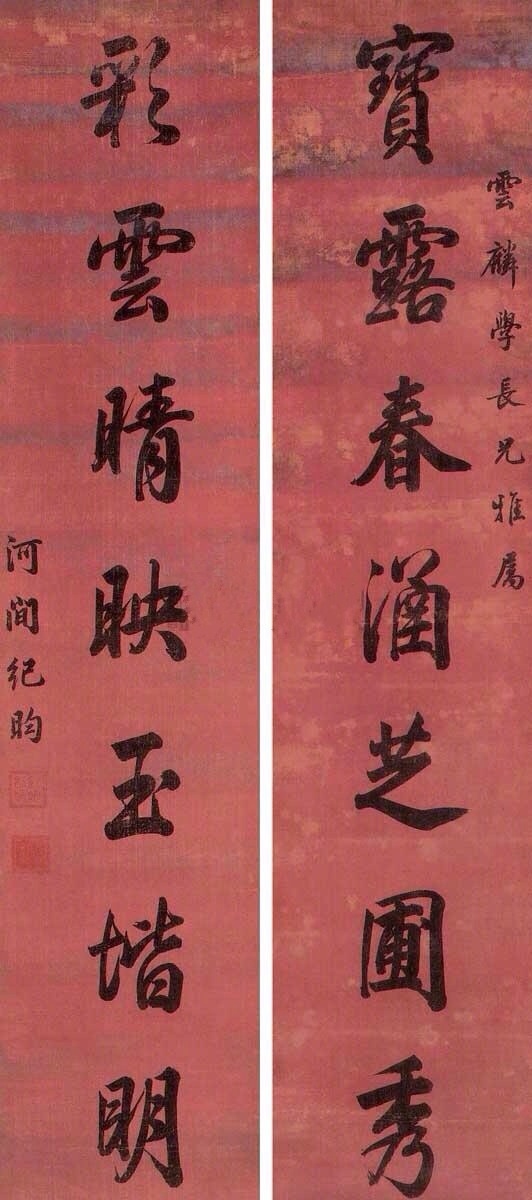 雲麟學長兄雅属
寶露春涵芝圃秀
彩雲晴映玉堦明
河間紀昀